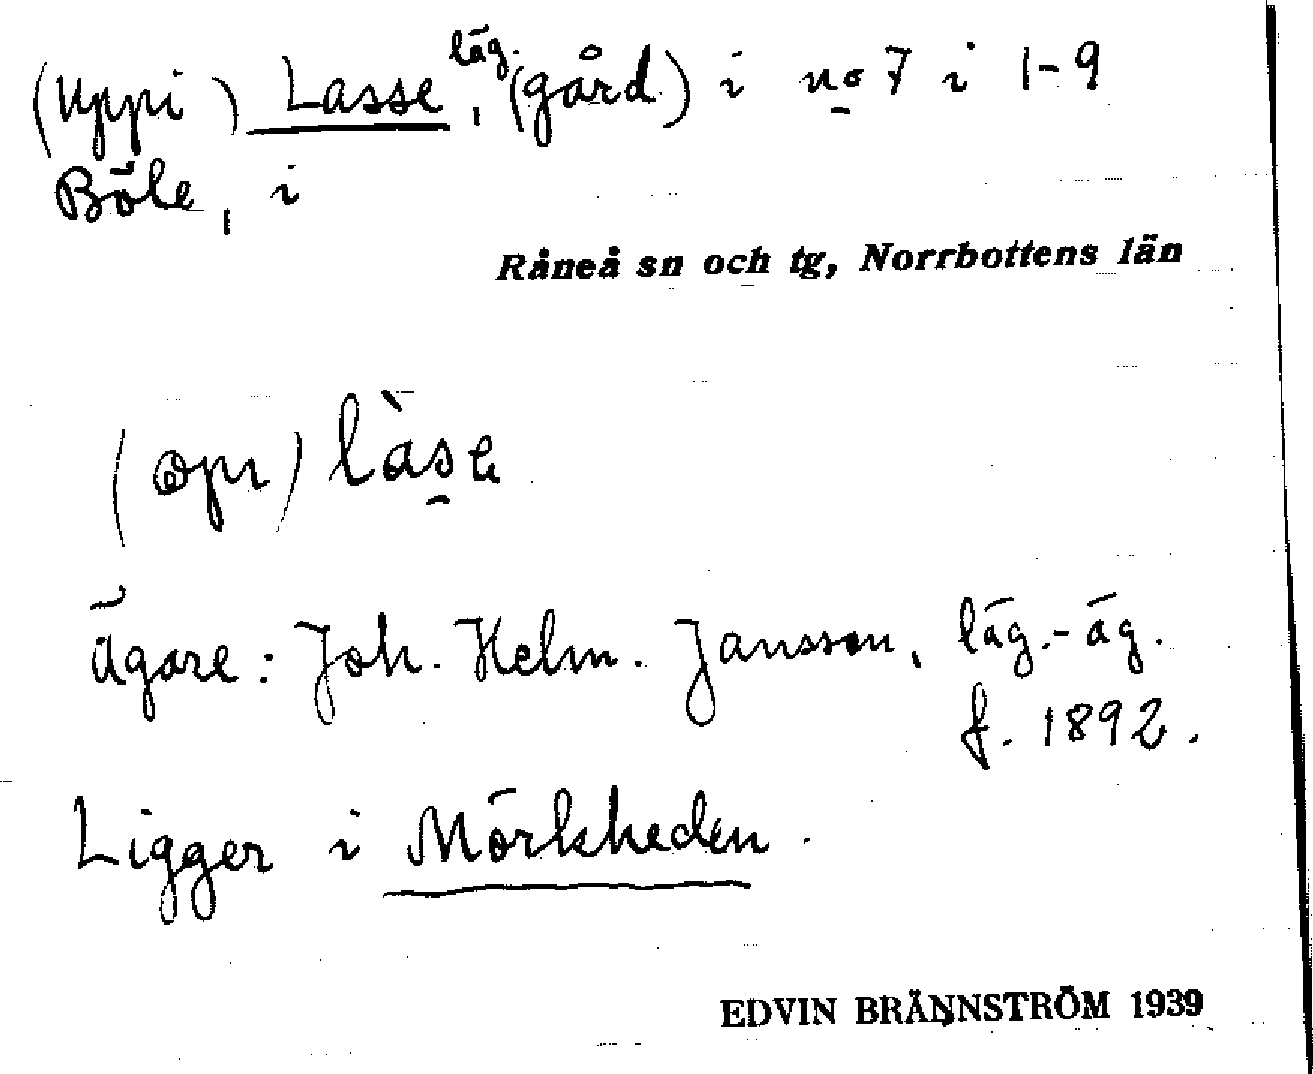 (Uppi) Lasse, läg. (gård) i no 7 i 1-9
Böle, i
Råneå sn och tg, Norrbottens län
(opi) làse
Ägare: Joh. Helm. Jansson, läg.-äg.
f. 1892.
Ligger i Mörkheden.
EDVIN BRÄNNSTRÖM 1939